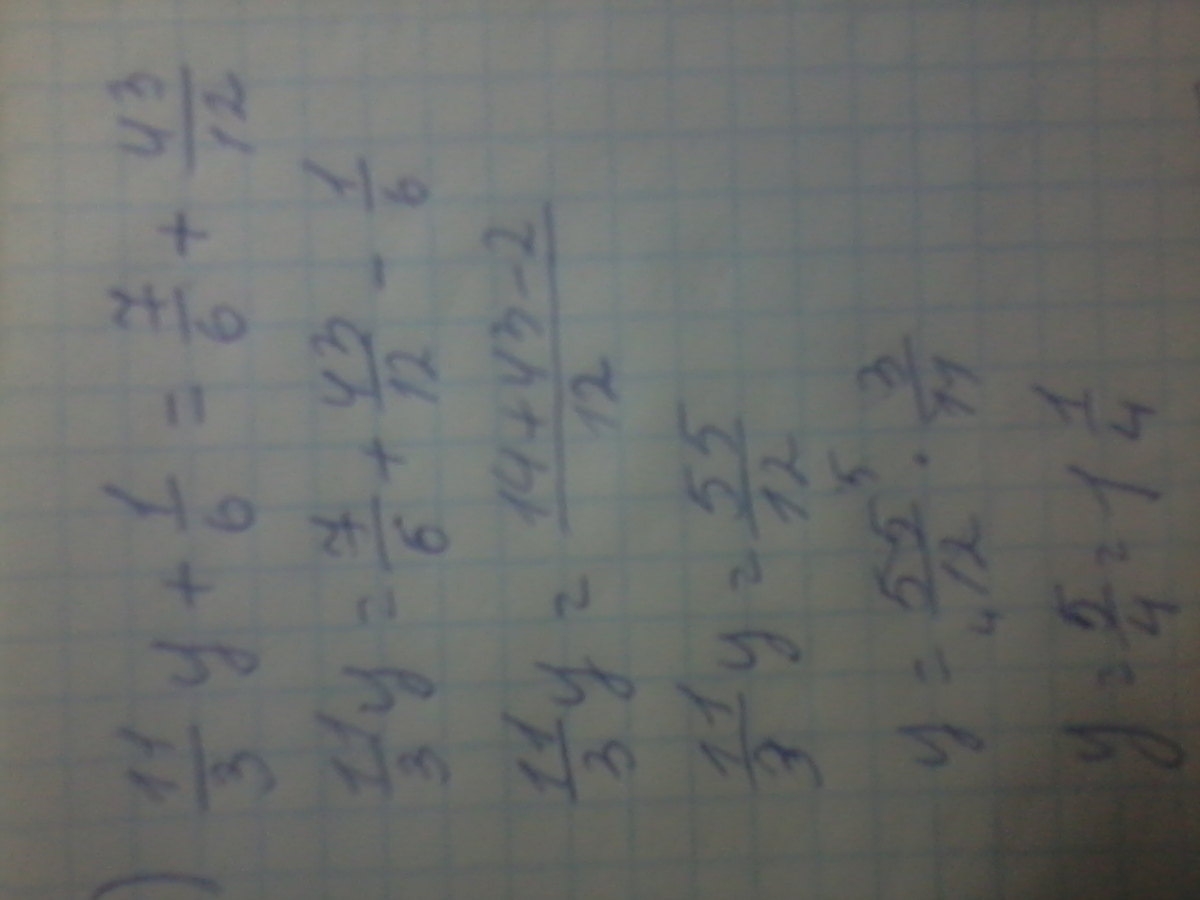 ) 11/3 y + 1/6 = 7/6 + 43/12
11/3 y = 7/6 + 43/12 - 1/6
11/3 y = (14+43-2)/12
11/3 y = 55/12
y = 55/12 · 3/11 5 4
y = 5/4 = 1 1/4